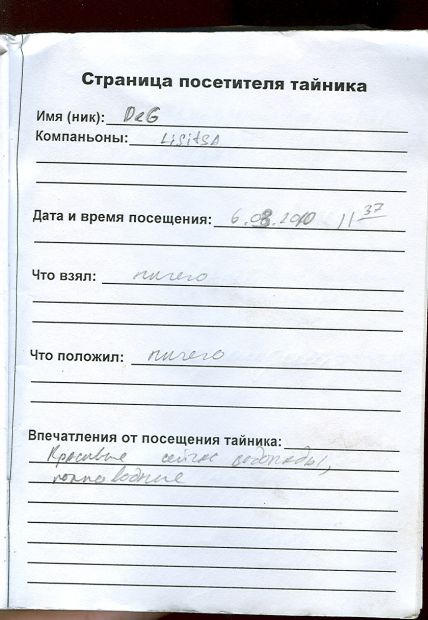 Страница посетителя тайника
Имя (ник): DeG
Компаньоны: Lisitsa
Дата и время посещения: 6.08.2010 11 37
Что взял: ничего
Что положил: ничего
Впечатления от посещения тайника:
Красивые сейчас водопады,
полноводные